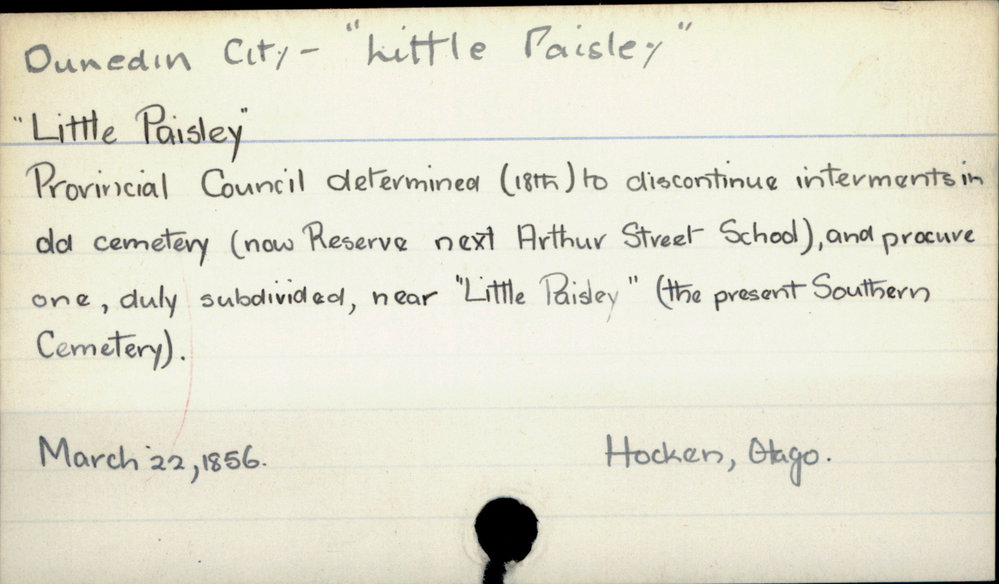 Dunedin City - "Little Paisley"
"Little Paisley"
Provincial Council determined (18th) to discontinue interments in
old cemetery (now Reserve next Arthur Street School), and procure
one, duly subdivided, near "Little Paisley" (the present Southern
Cemetery).
March 22, 1856. Hocken, Otago.